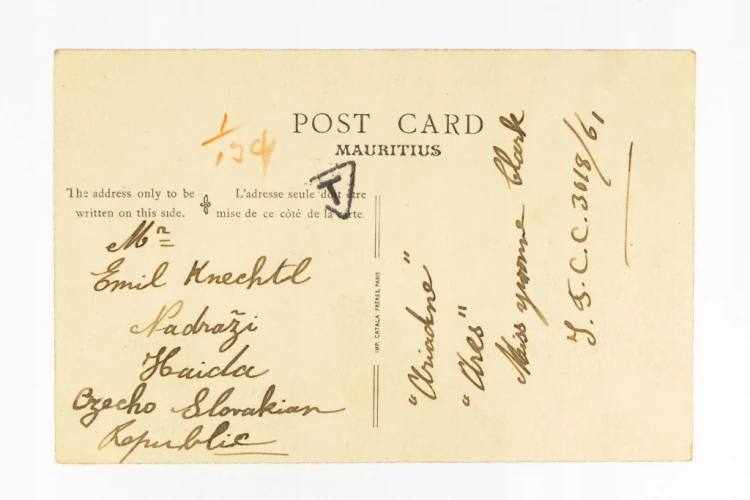 POST CARD
MAURITIUS
The address only to be
written on this side.
L'adresse seule doit être
mise de ce côté de la carte.
T
Mr
Emil Knechtl
Nadraži
Haida
Czecho Slovakian
Republic
IMP. CATALA FRÈRES, PARIS
"Ariadne"
"Ares"
Miss Yvonne Clark
C.C. 3018/61